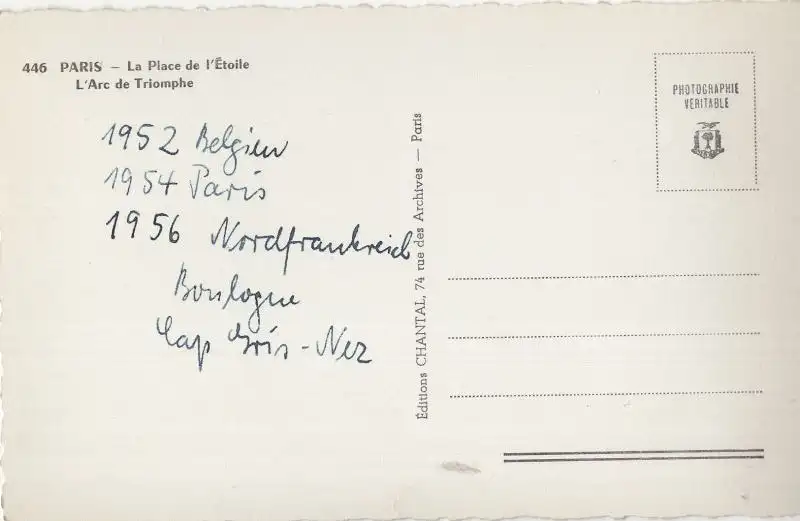 446 PARIS – La Place de l'Étoile
L'Arc de Triomphe
1952 Belgien
1954 Paris
1956 Nordfrankreich
Boulogne
Cap Gris-Nez
Éditions CHANTAL, 74 rue des Archives – Paris
PHOTOGRAPHIE
VERITABLE